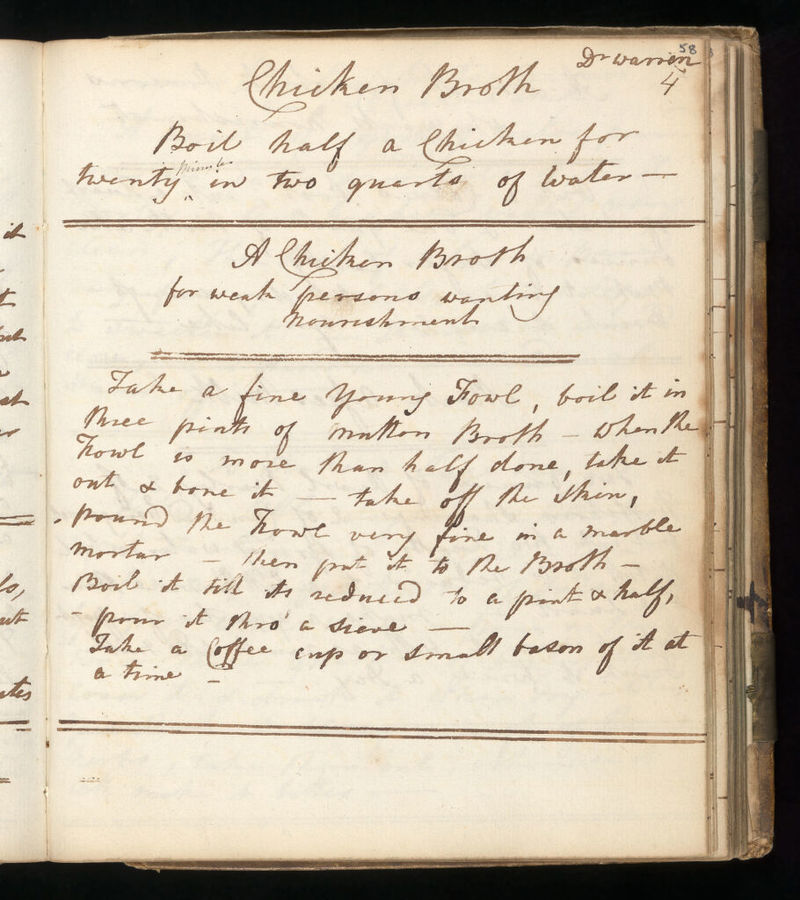 58
Dr warren
4
Chicken Broth
Boil half a Chicken for
twenty minutes in two quarts of Water —
A Chicken Broth
for weak persons wanting
nourishment
Take a fine Young Fowl, boil it in
three pints of mutton Broth – when the
Fowl is more than half done, take it
out & bone it — take off the Skin,
pound the Fowl very fine in a marble
mortar – then put it to the Broth –
Boil it till its reduced to a pint & half,
– pour it thro' a sieve —
Take a Coffee cup or small bason of it at
a time –